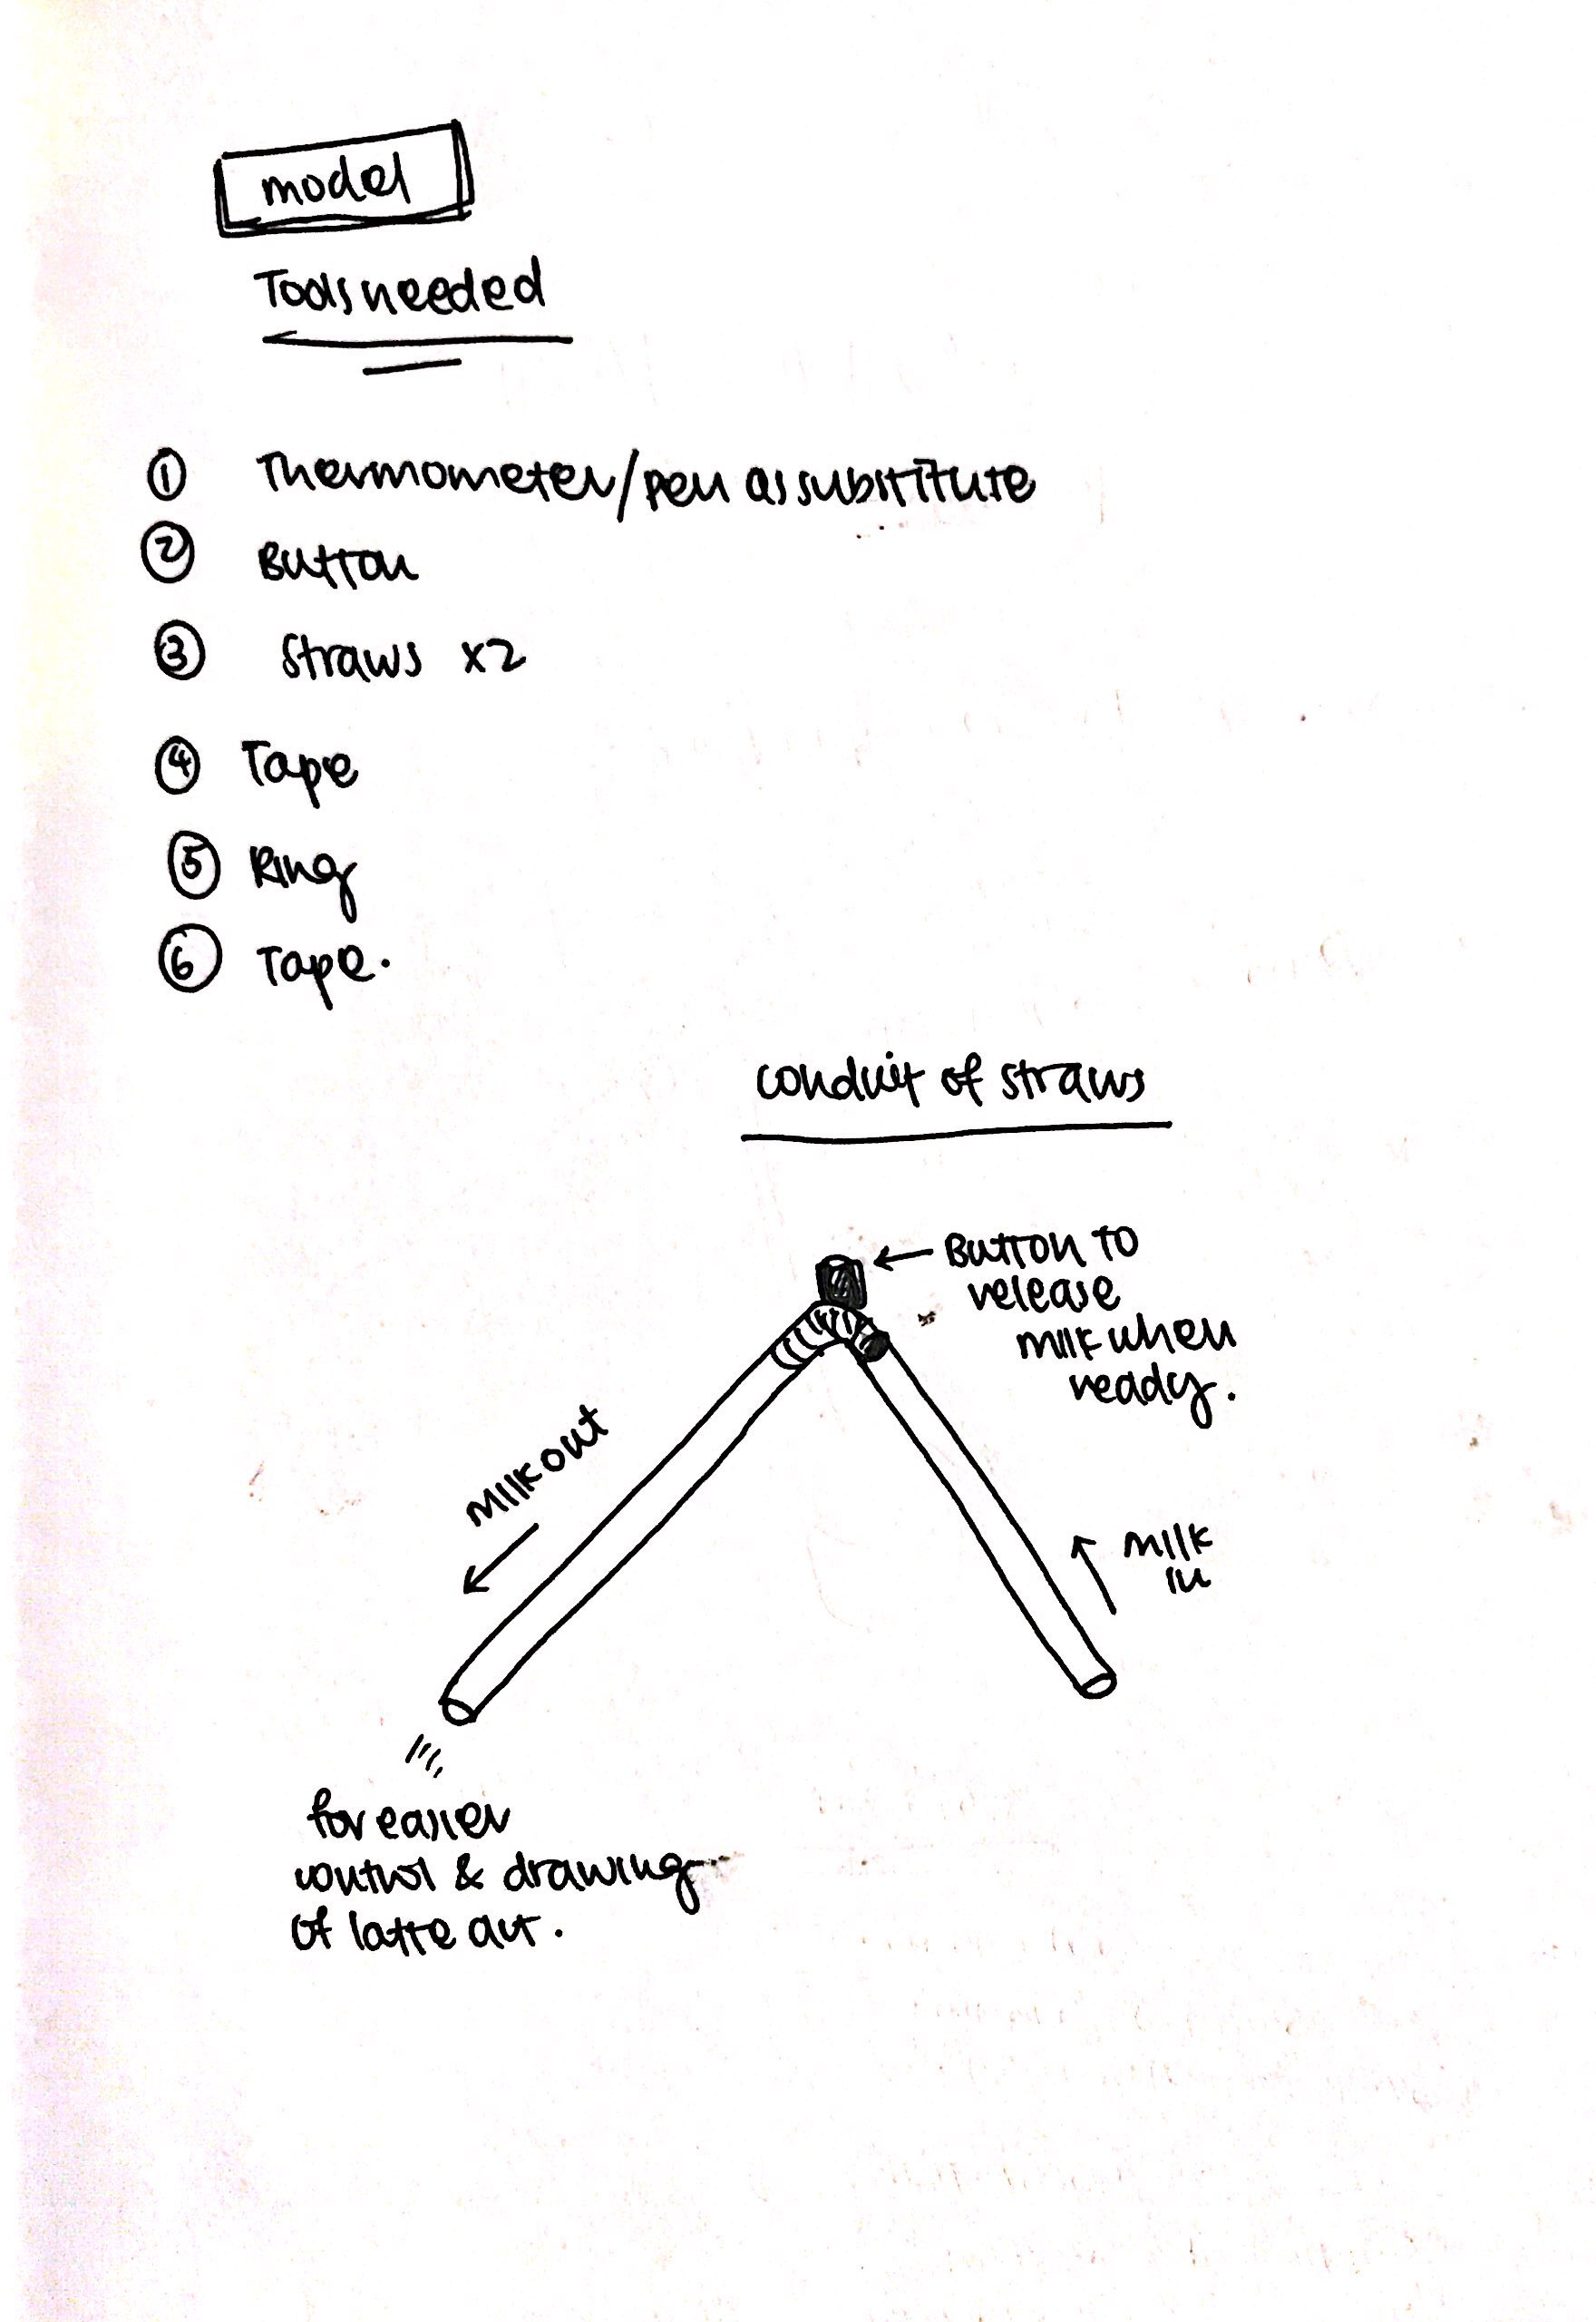 model
Tools needed
① Thermometer/pen as substitute
② Button
③ Straws x2
④ Tape
⑤ Ring
⑥ Tape.
conduit of straws
Button to
release
milk when
ready.
milk out
milk
in
for easier
control & drawing
of latte art.